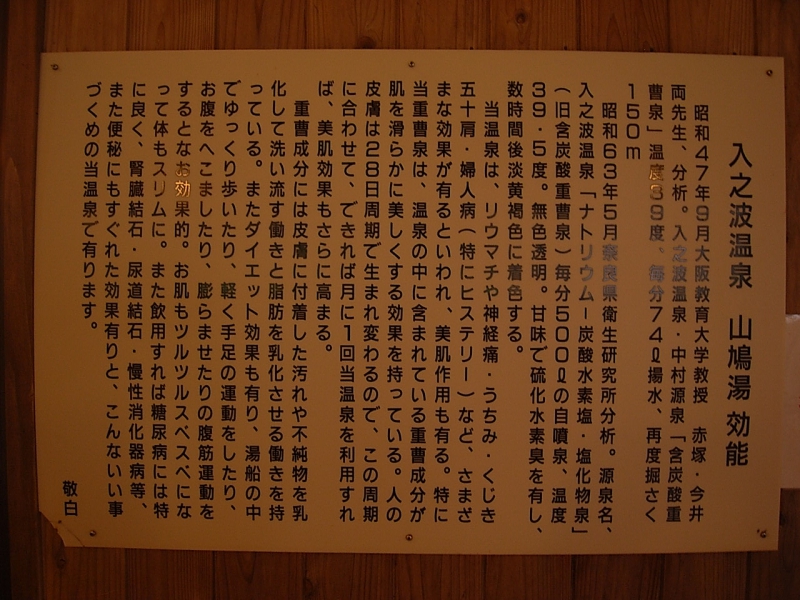 入之波温泉　山鳩湯 効能
昭和４７年９月大阪教育大学教授　赤塚・今井
両先生、分析。入之波温泉・中村源泉「含炭酸重
曹泉」温度３９度、毎分７４ℓ揚水、再度掘さく
１５０ｍ
昭和６３年５月奈良県衛生研究所分析。源泉名、
入之波温泉「ナトリウム－炭酸水素塩・塩化物泉」
（旧含炭酸重曹泉）毎分５００ℓの自噴泉、温度
３９・５度。無色透明。甘味で硫化水素臭を有し、
数時間後淡黄褐色に着色する。
当温泉は、リウマチや神経痛・うちみ・くじき
五十肩・婦人病（特にヒステリー）など、さまざ
まな効果が有るといわれ、美肌作用も有る。特に
当重曹泉は、温泉の中に含まれている重曹成分が
肌を滑らかに美しくする効果を持っている。人の
皮膚は２８日周期で生まれ変わるので、この周期
に合わせて、できれば月に１回当温泉を利用すれ
ば、美肌効果もさらに高まる。
重曹成分には皮膚に付着した汚れや不純物を乳
化して洗い流す働きと脂肪を乳化させる働きを持
っている。またダイエット効果も有り、湯船の中
でゆっくり歩いたり、軽く手足の運動をしたり、
お腹をへこましたり、膨らませたりの腹筋運動を
するとなお効果的。お肌もツルツルスベスベにな
って体もスリムに。また飲用すれば糖尿病には特
に良く、腎臓結石・尿道結石・慢性消化器病等、
また便秘にもすぐれた効果有りと、こんないい事
づくめの当温泉で有ります。
敬白